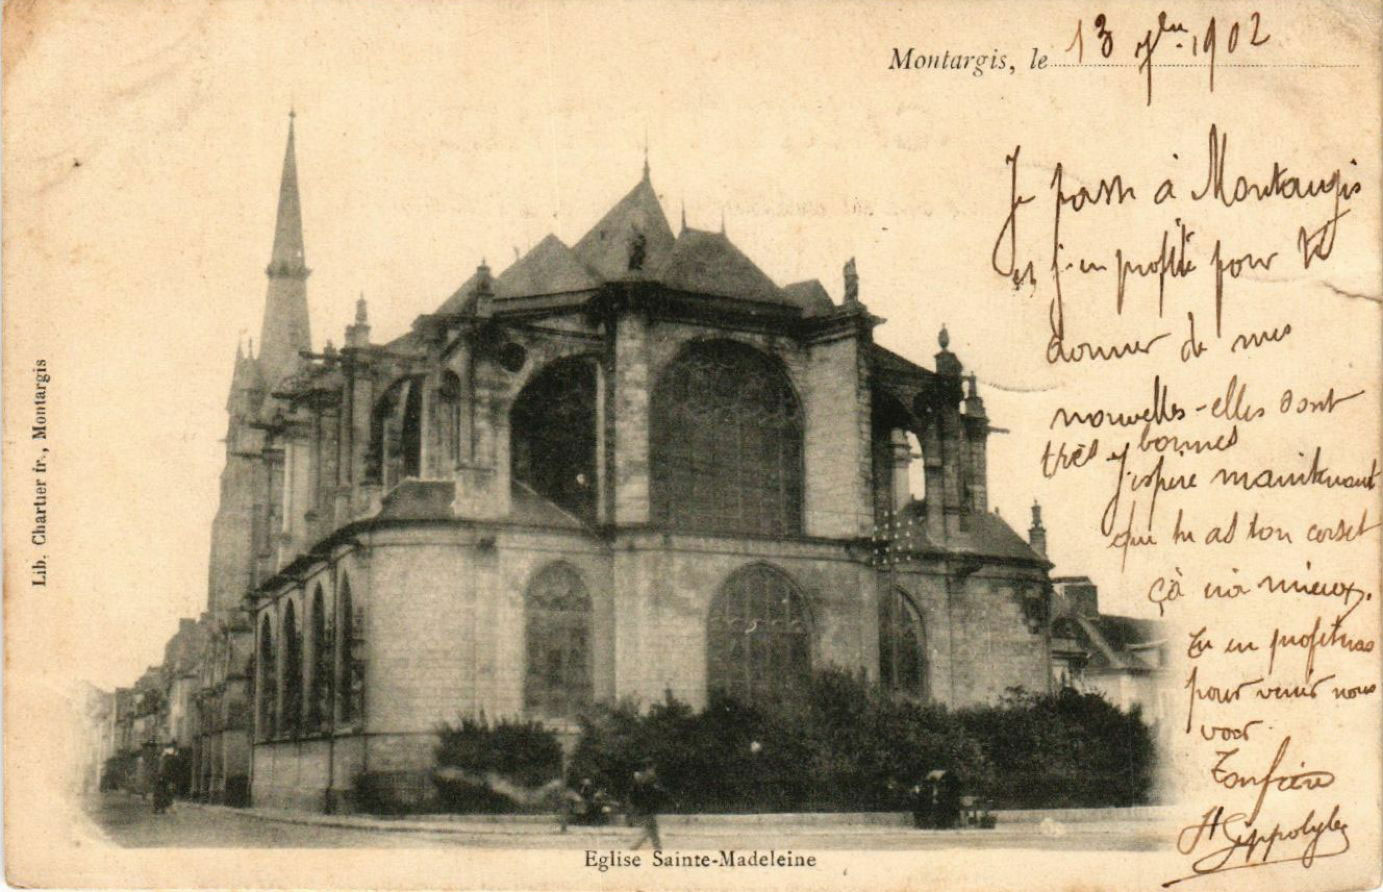 Montargis, le 13 7bre 1902
Je passe à Montargis
et j'en profite pour te
donner de mes
nouvelles - elles sont
très bonnes
J'espère maintenant
que tu as ton corset
çà ira mieux.
Tu en profiteras
pour venir nous
voir.
Ton frère
Hippolyte
Lib. Chartier fr., Montargis
Eglise Sainte-Madeleine